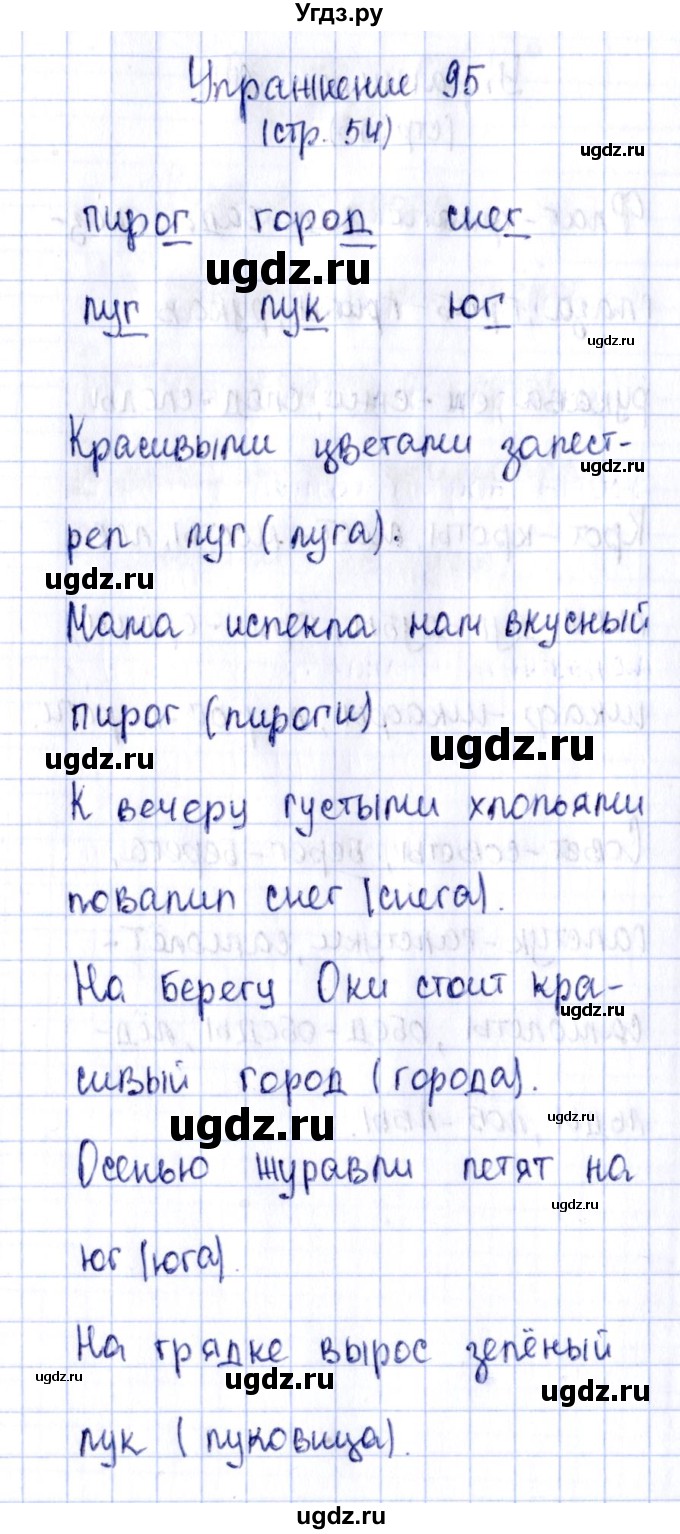 Угдз.ру
Упражнение 95
(стр. 54)
ugdz.ru
пирог город снег
ugdz.ru
луг лук юг
ugdz.ru
Красивыми цветами запест-
ugdz.ru
рел луг (луга).
ugdz.ru
Мама испекла нам вкусный
пирог (пироги).
ugdz.ru
ugdz.ru
К вечеру густыми хлопьями
повалил снег (снега).
На берегу Оки стоит кра-
ugdz.ru
сивый город (города).
ugdz.ru
ugdz.ru
Осенью журавли летят на
ugdz.ru
юг (юга).
На грядке вырос зелёный
ugdz.ru
ugdz.ru
ugdz.ru
лук (луковица).
ugdz.ru